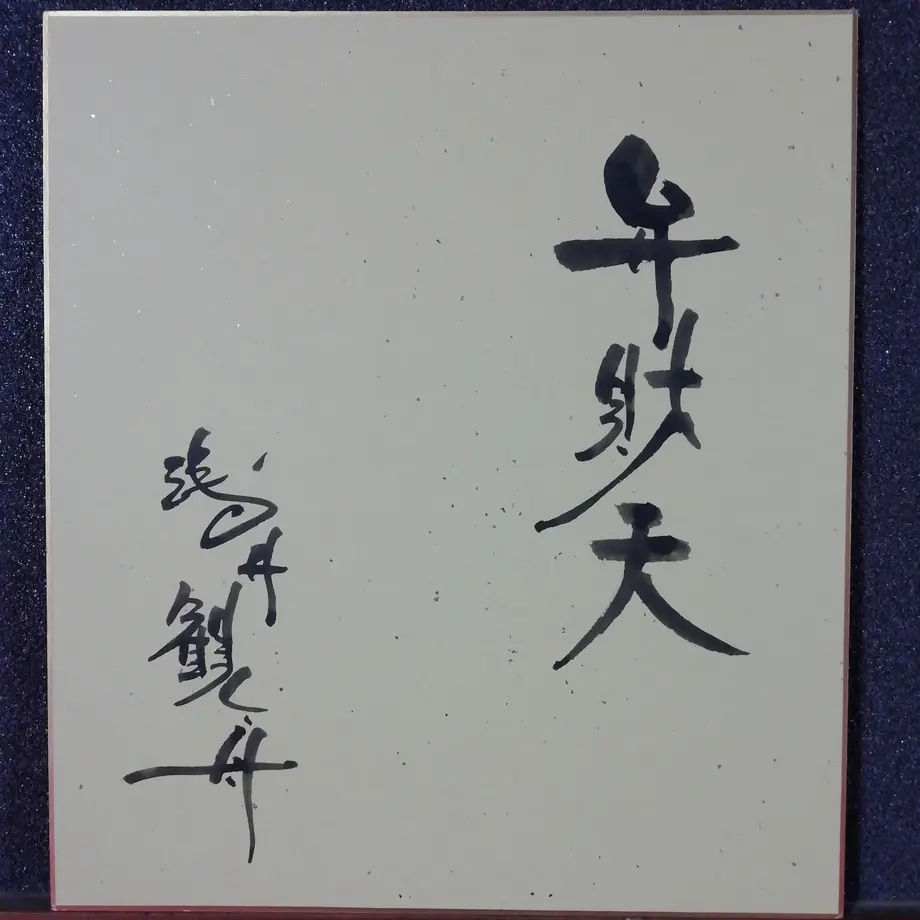 弁財天
浅井観舟